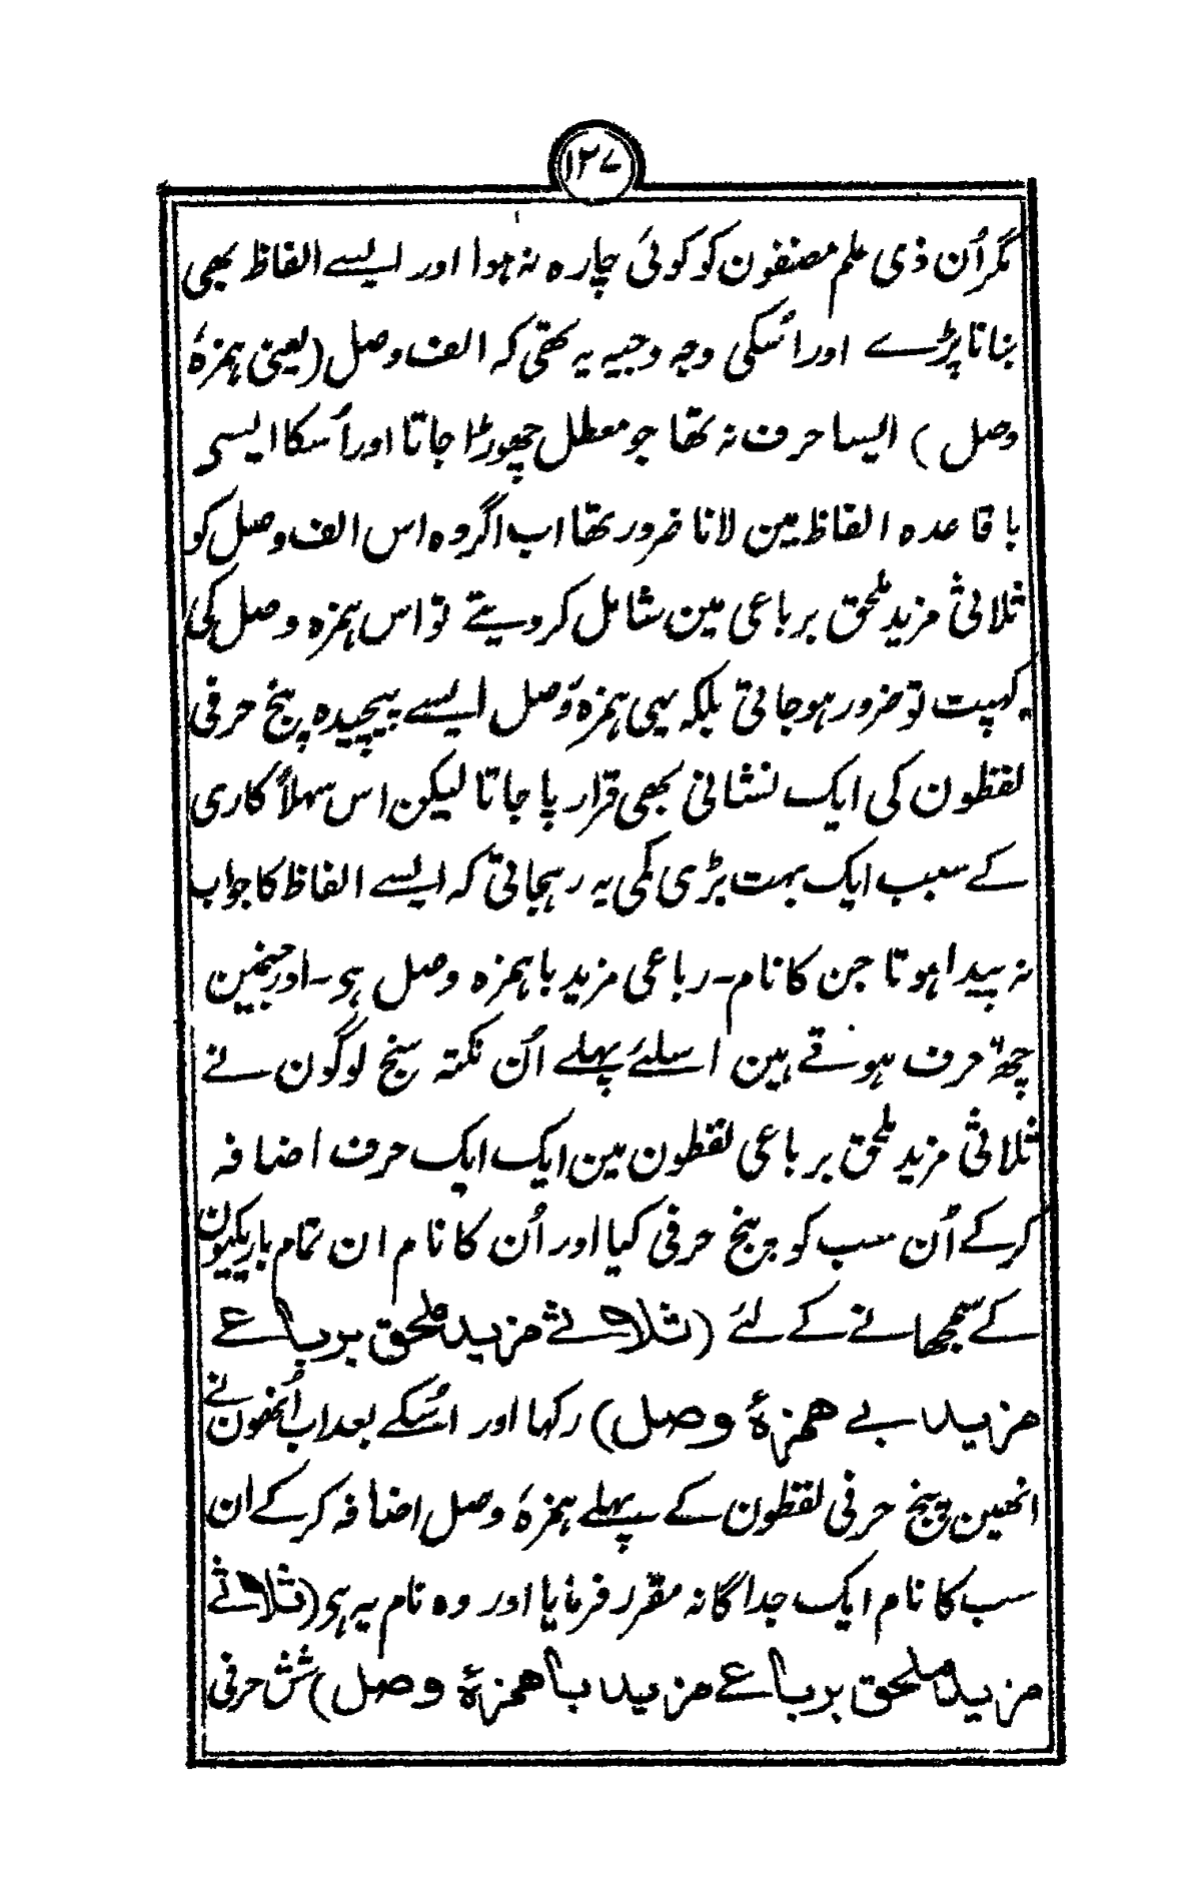 ۱۲۷
مگر اُن ذی علم مصنفون کو کوئی چارہ نہ ہوا اور ایسے الفاظ بھی
بنانا پڑے اور اُسکی وجہ وجیہ یہ تھی کہ الف وصل (یعنی ہمزۂ
وصل) ایسا حرف نہ تھا جو معطل چھوڑا جاتا اور اُسکا ایسی
با قاعدہ الفاظ مین لانا ضرور تھا اب اگر وہ اس الف وصل کو
ثلاثی مزید ملحق برباعی مین شامل کر دیتے تو اس ہمزہ وصل کی
کھپت تو ضرور ہو جاتی بلکہ یہی ہمزۂ وصل ایسے پیچیدہ پنج حرفی
لفظون کی ایک نشانی بھی قرار پا جاتا لیکن اس سہلاً کاری
کے سبب ایک بہت بڑی کمی یہ رہجاتی کہ ایسے الفاظ کا جواب
نہ پیدا ہوتا جن کا نام۔ رباعی مزید با ہمزہ وصل ہی۔ اور جنمین
چھ حرف ہوتے ہین اسلئے پہلے اُن نکتہ سنج لوگون نے
ثلاثی مزید ملحق برباعی لفظون مین ایک ایک حرف اضافہ
کر کے اُن سب کو پنج حرفی کیا اور اُن کا نام ان تمام باریکیون
کے سمجھانے کے لئے (ثلاثے مزید ملحق برباعے
مزید بے ھمزۂ وصل) رکھا اور اُسکے بعد اب اُنھون نے
انھین پنج حرفی لفظون کے پہلے ہمزۂ وصل اضافہ کر کے ان
سب کا نام ایک جداگانہ مقرر فرمایا اور وہ نام یہ ہی (ثلاثے
مزید ملحق برباعے مزید با ھمزۂ وصل) شش حرفی